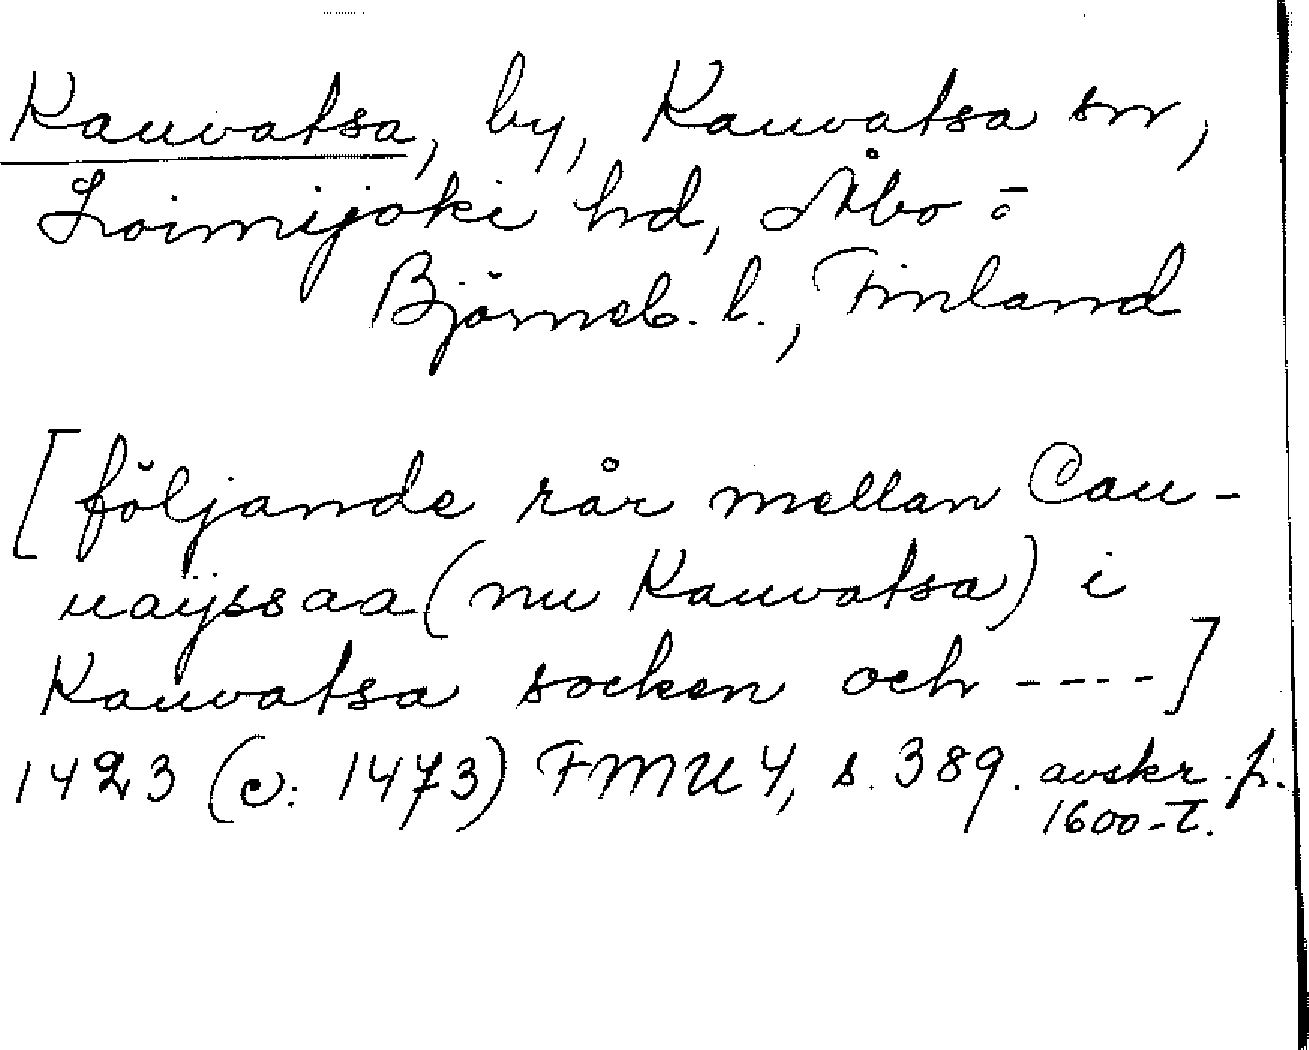 Kauvatsa, by, Kauvatsa sn,
Loimijoki hd, Åbo o.
Björneb. l., Finland
[följande rår mellan Cau-
uaijssaa (nu Kauvatsa) i
Kauvatsa socken och ----]
1423 (c: 1473) FMU 4, s. 389. avskr. fr.
1600-t.